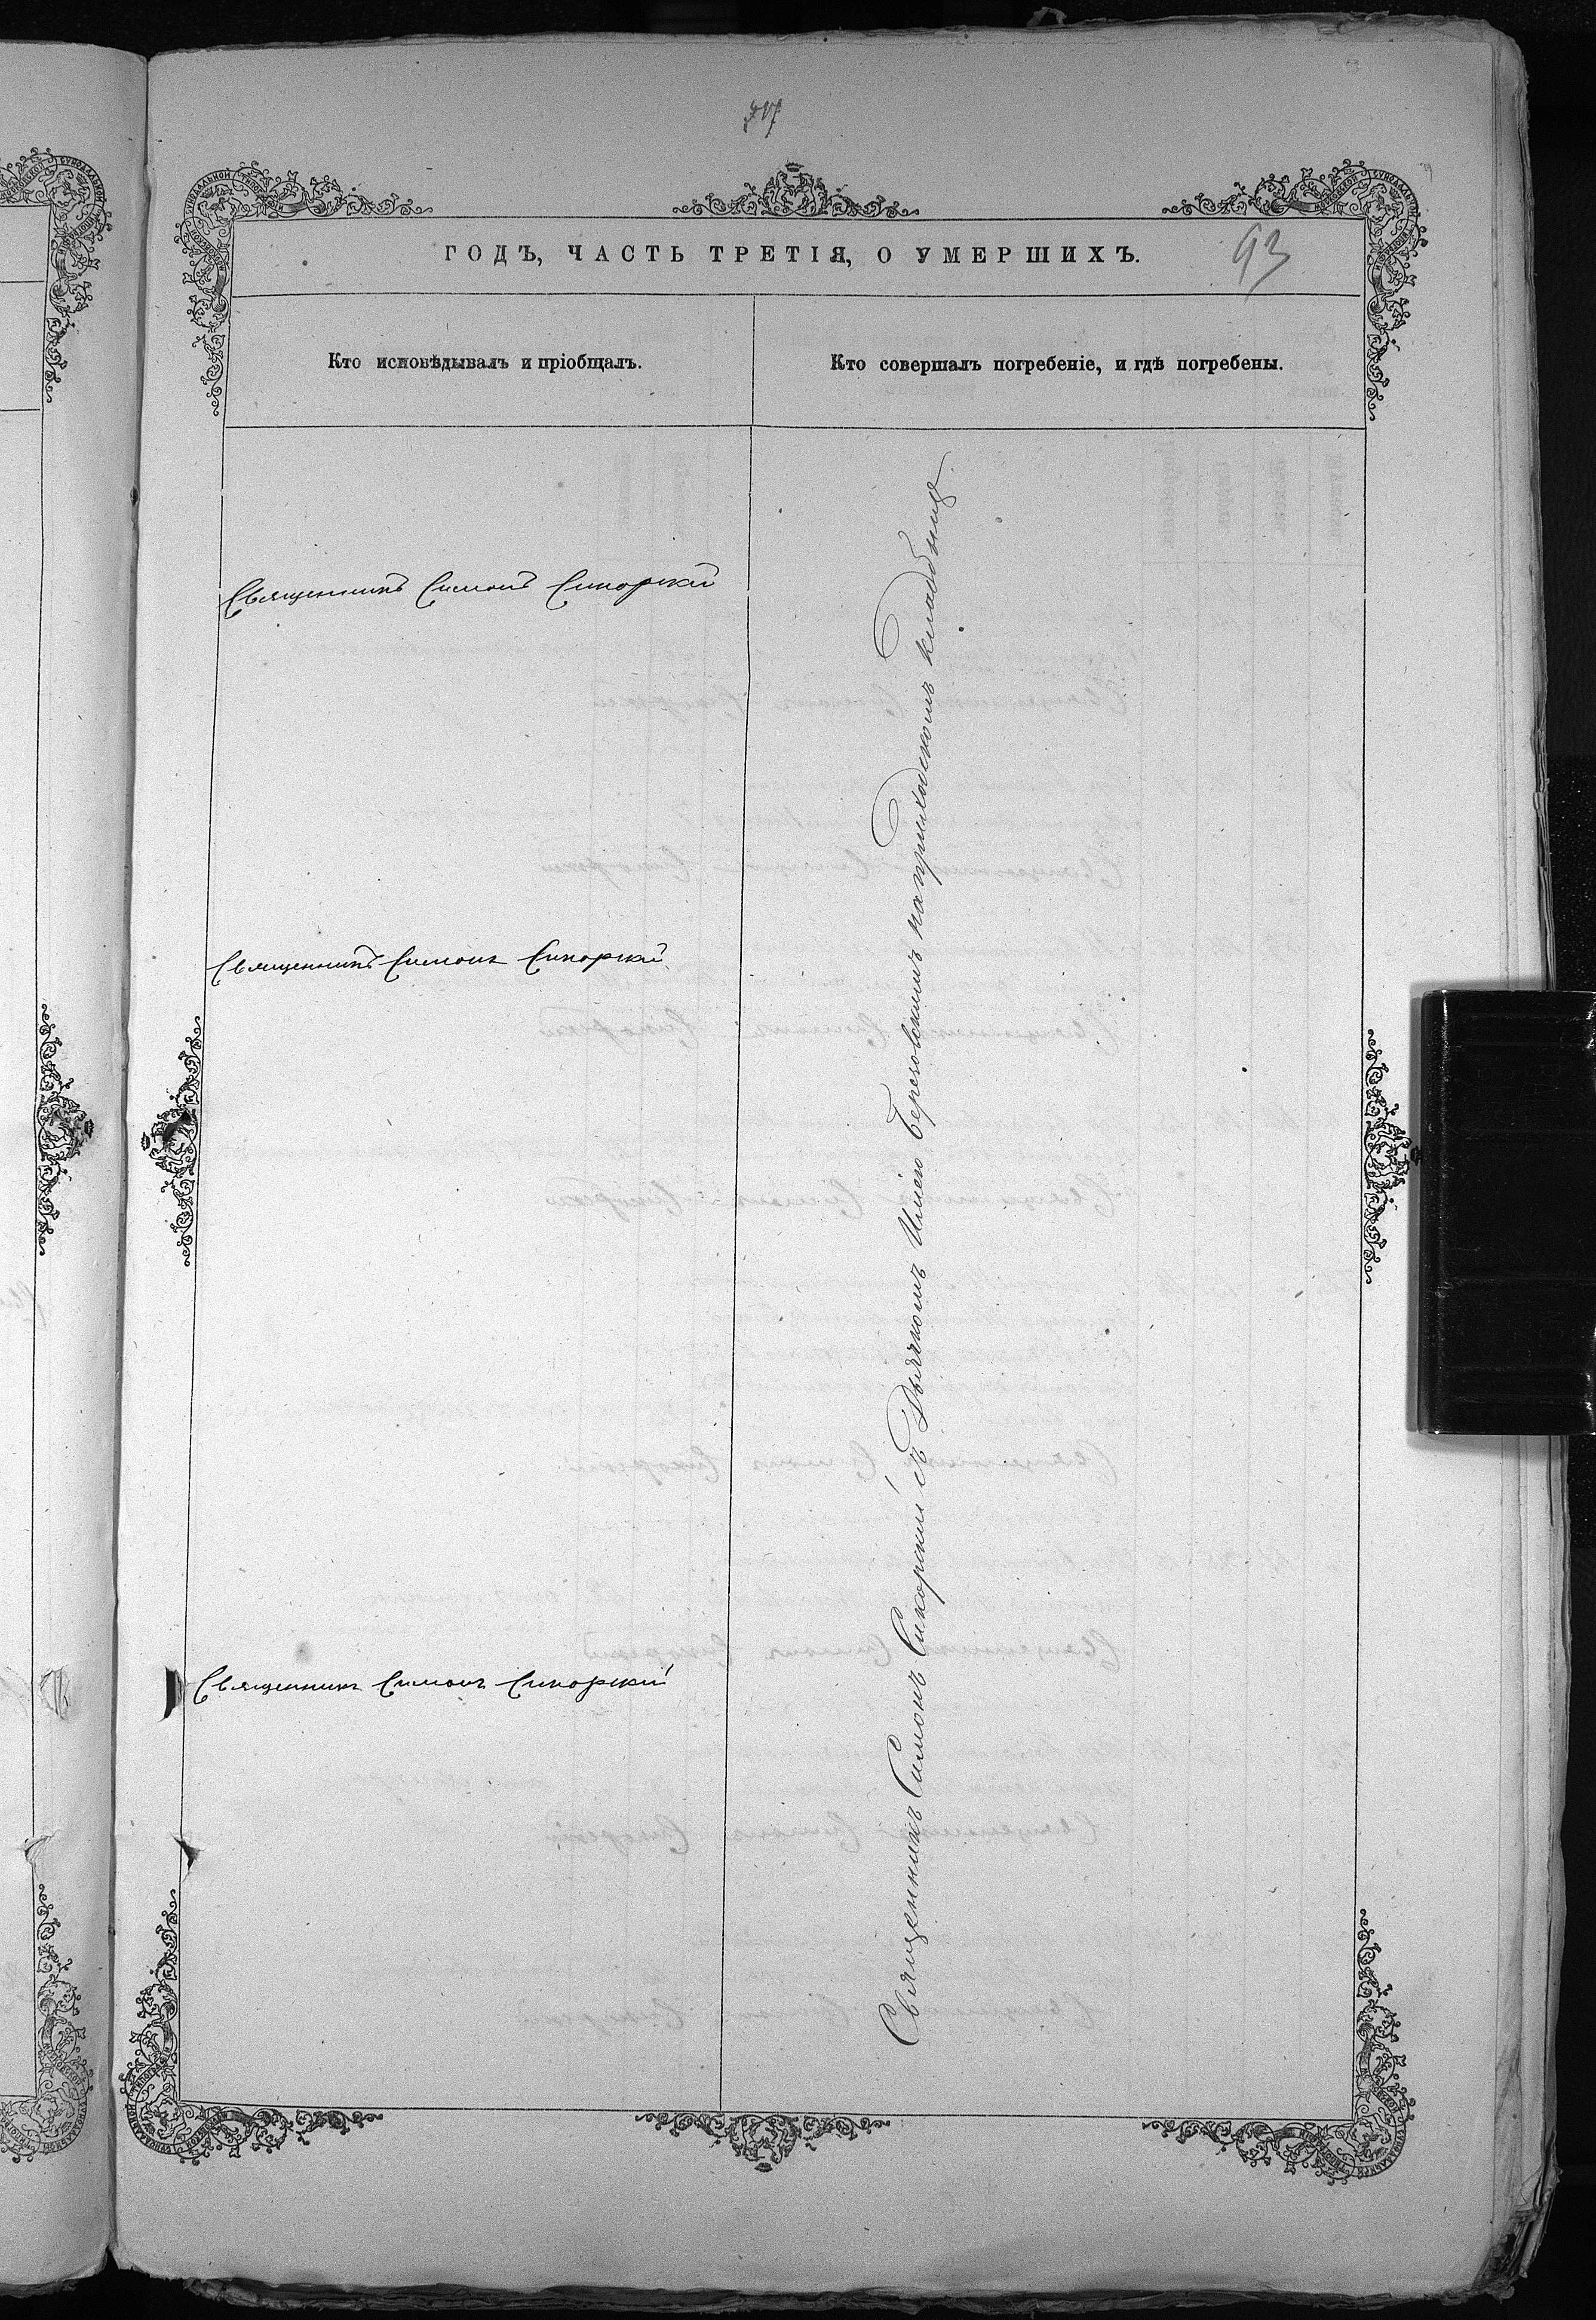 93
ГОДЪ, ЧАСТЬ ТРЕТІЯ, О УМЕРШИХЪ.
Кто исповѣдывалъ и пріобщалъ.
Кто совершалъ погребеніе, и гдѣ погребены.
Священникъ Симонъ Сикорскій
Священникъ Симонъ Сикорскій
Священникъ Симонъ Сикорскій
Священникъ Симонъ Сикорскій съ Дьячкомъ Иліею Березовскимъ на приходскомъ кладбищѣ.